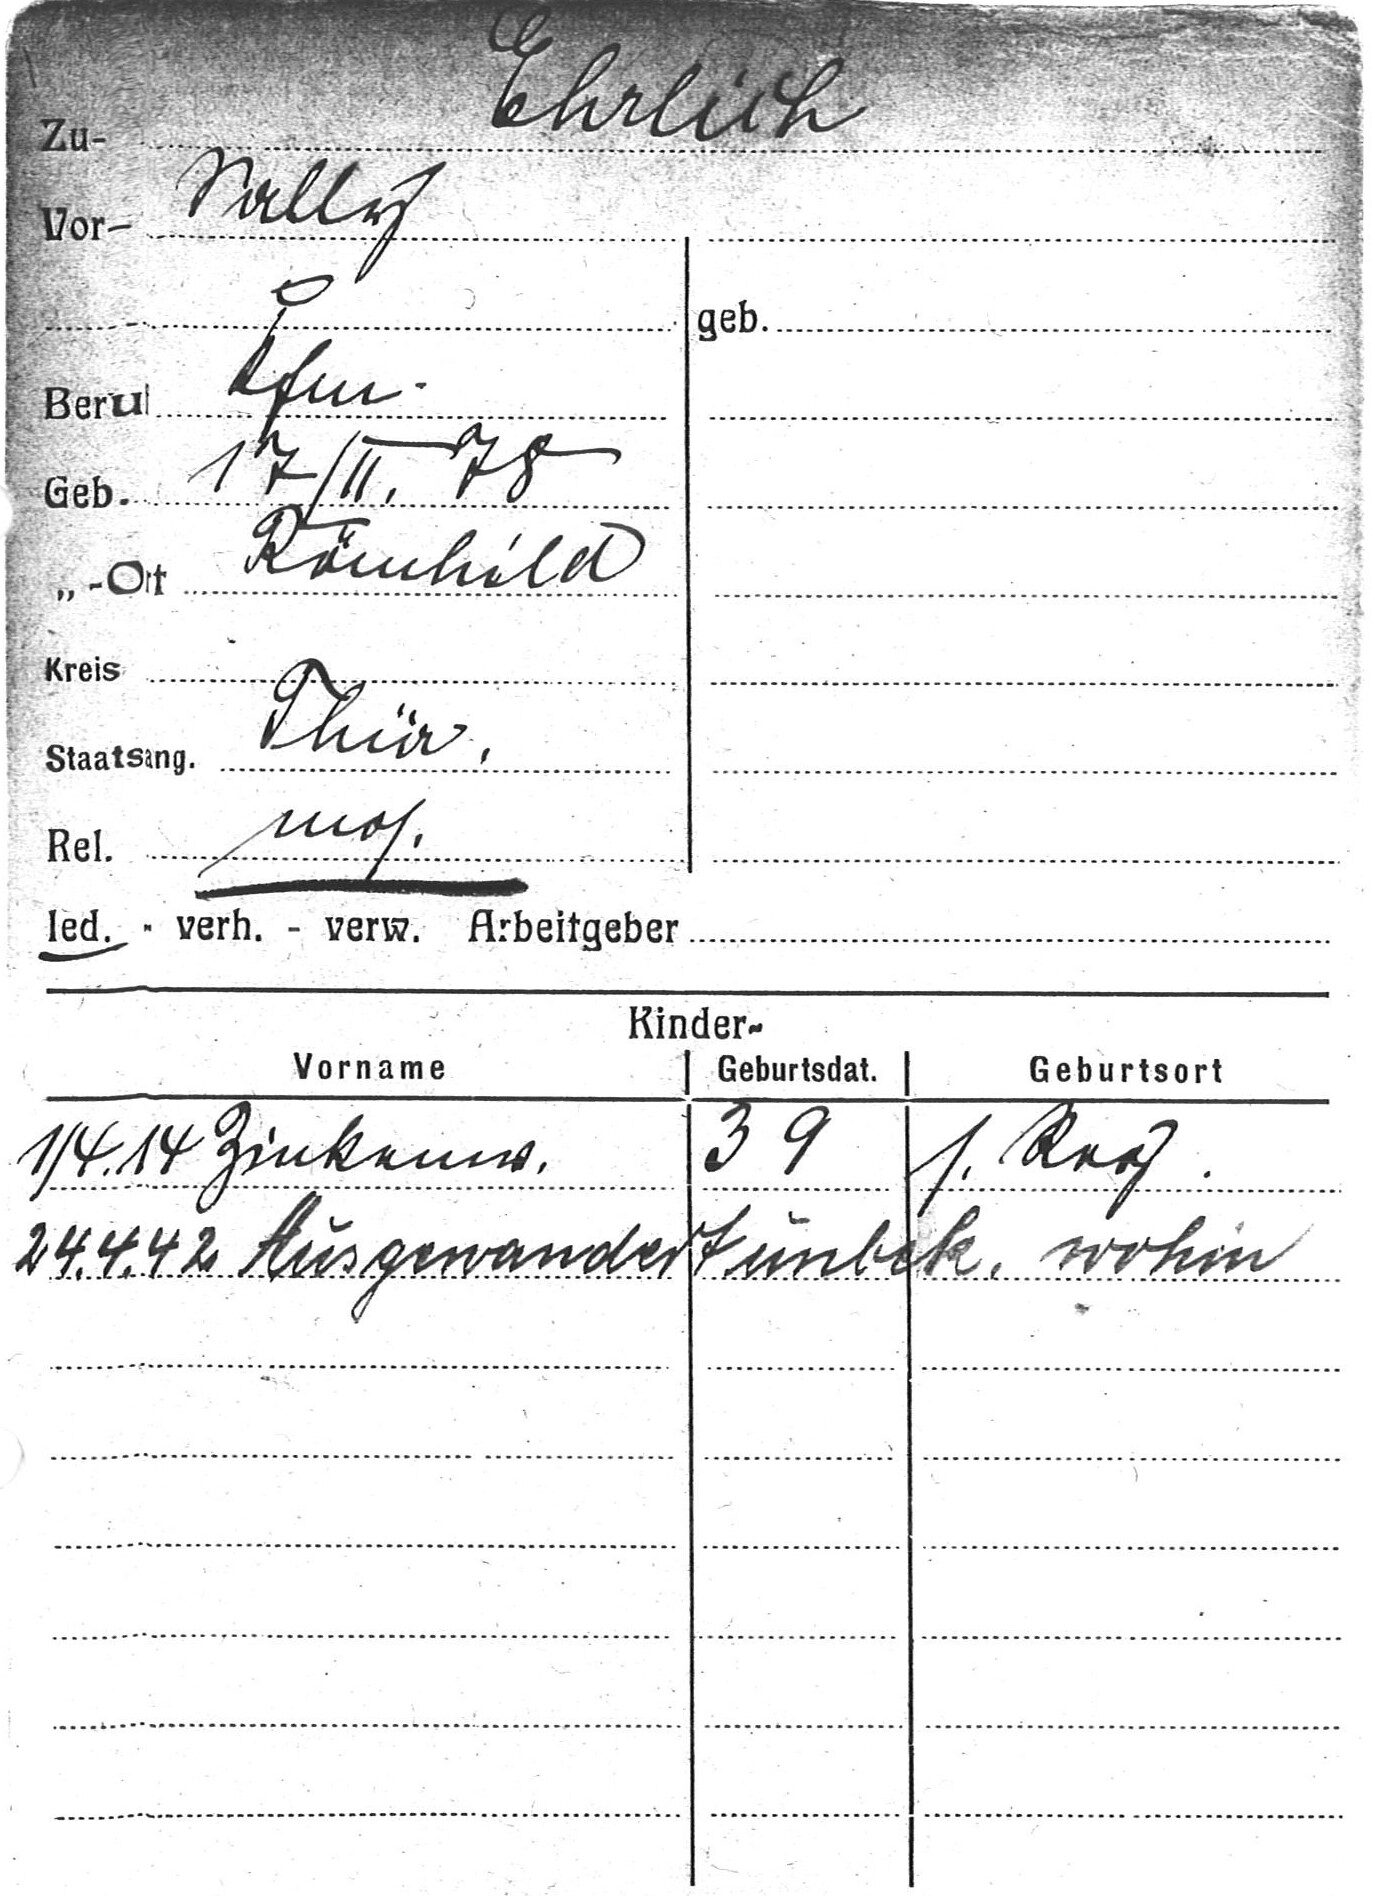 Zu- Ehrlich
Vor- Sally
geb.
Beruf Kfm.
Geb. 17/II. 78
„ -Ort Römhild
Kreis
Staatsang. Thür.
Rel. mos.
led. - verh. - verw. Arbeitgeber
Kinder-
Vorname Geburtsdat. Geburtsort
1/4.14 Zinkenw. 39 b.
24.4.42 Ausgewandert unbek. wohin